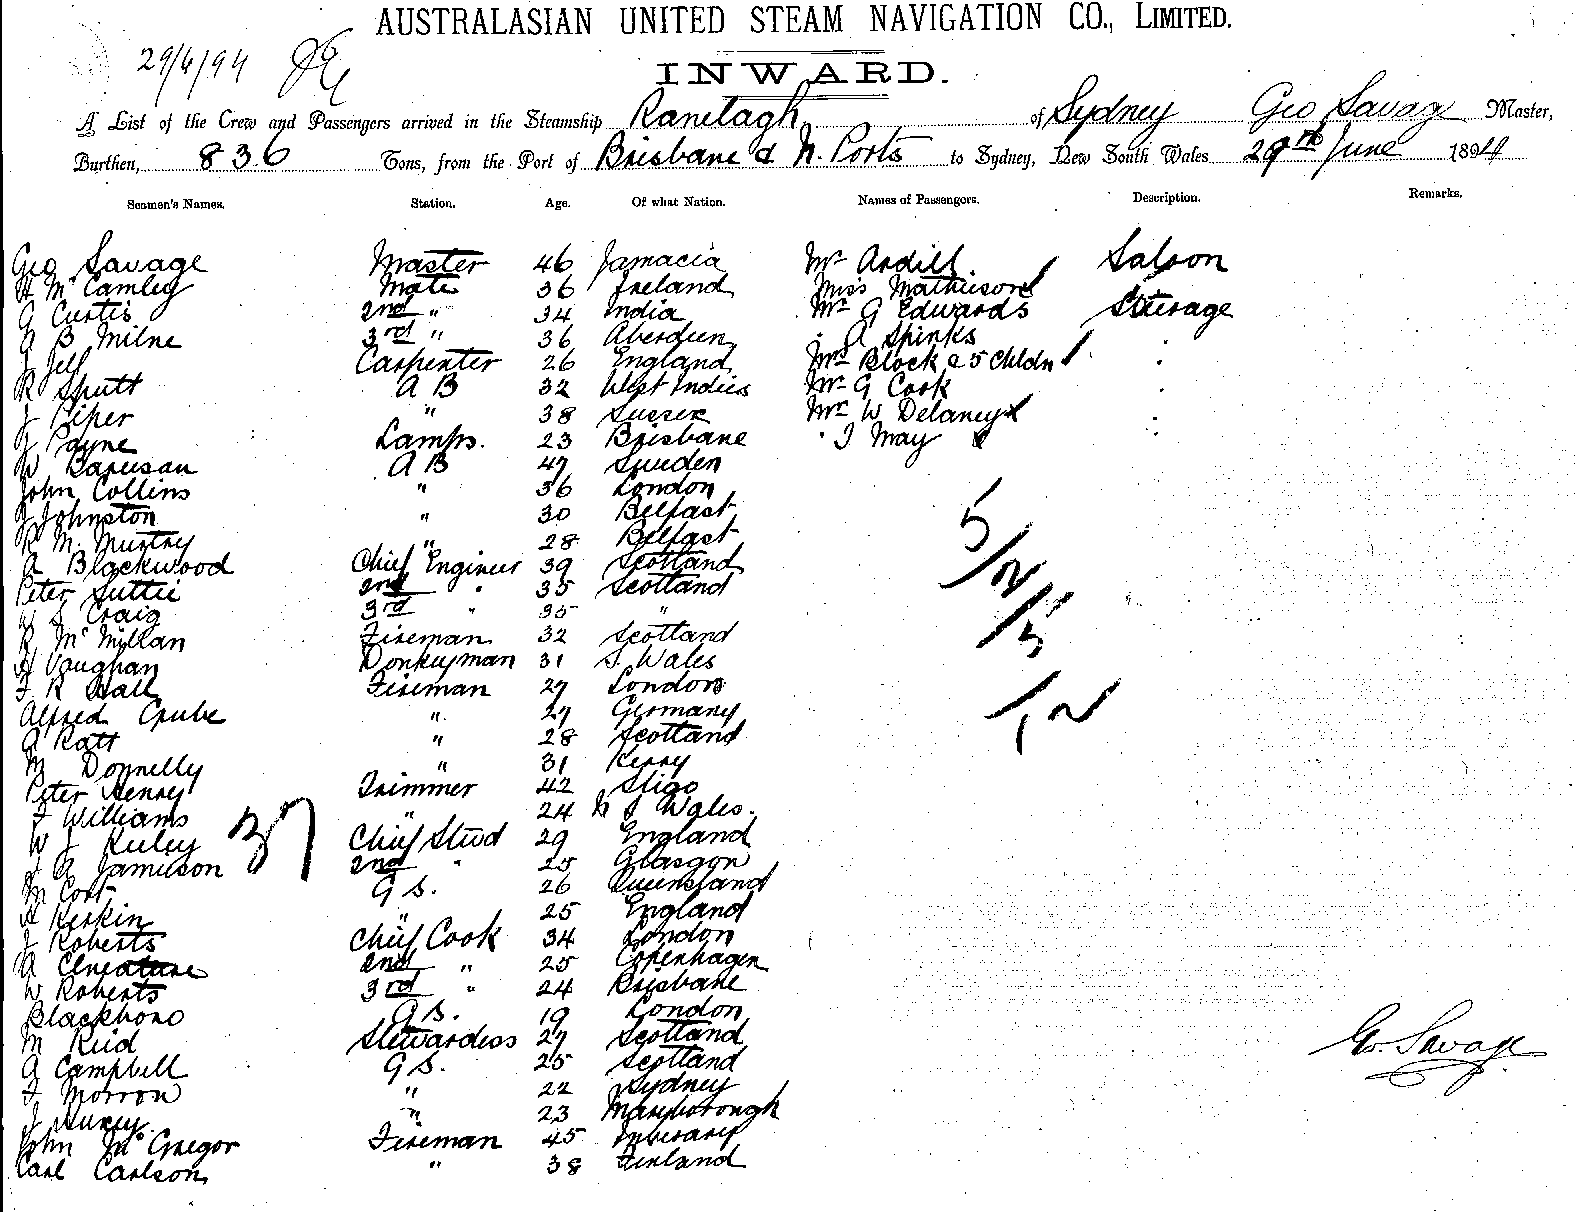 AUSTRALASIAN UNITED STEAM NAVIGATION CO., LIMITED.
29/6/94
INWARD.
A List of the Crew and Passengers arrived in the Steamship Ranelagh of Sydney Geo Savage Master,
Burthen, 836 Tons, from the Port of Brisbane & N. Ports to Sydney, New South Wales 29th June 1894
Seamen's Names. Station. Age. Of what Nation. Names of Passengers. Description. Remarks.
Geo Savage Master 46 Jamacia Mr Ardill Saloon
H Mc Camley Mate 36 Ireland Miss Mathieson
A Curtis 2nd " 34 India Mr G Edwards Steerage
A B Milne 3rd " 36 Aberdeen A Spinks
J Jeff Carpenter 26 England Mrs Block & 5 Chldn
R Shutt A B 32 West Indies Mr G Cook
J Piper " 38 Sussex Mr W Delaney
J Payne Lamps. 23 Brisbane J May
W A B 47 Sweden
John Collins " 36 London
J Johnston " 30 Belfast
R M. Murtry " 28 Belfast
A Blackwood Chief Engineer 39 Scotland
Peter Suttie 2nd " 35 Scotland
Craig 3rd " 35 "
R Mc Millan Fireman 32 Scotland
H Vaughan Donkeyman 31 S. Wales
F R Hall Fireman 27 London
Alfred Grube " 27 Germany
A Ratt " 28 Scotland
M Donnelly " 31 Kerry
Peter Henry Trimmer 42 Sligo
F Williams " 24 N S Wales.
W J Kuley Chief Stwd 29 England
J R Jamieson 2nd " 25 Glasgow
M Cort G S. 26 Queensland
A Kerkin " 25 England
J Roberts Chief Cook 34 London
A 2nd " 25 Copenhagen
W Roberts 3rd " 24 Brisbane
G S. 19 London
M Reid Stewardess 27 Scotland
A Campbell G S. 25 Scotland
F Morron " 22 Sydney
J " 23 Maryborough
John Mc Gregor Fireman 45 Inverary
Carl Carlson " 38 Finland
37
5/2
/5
/12
Geo. Savage